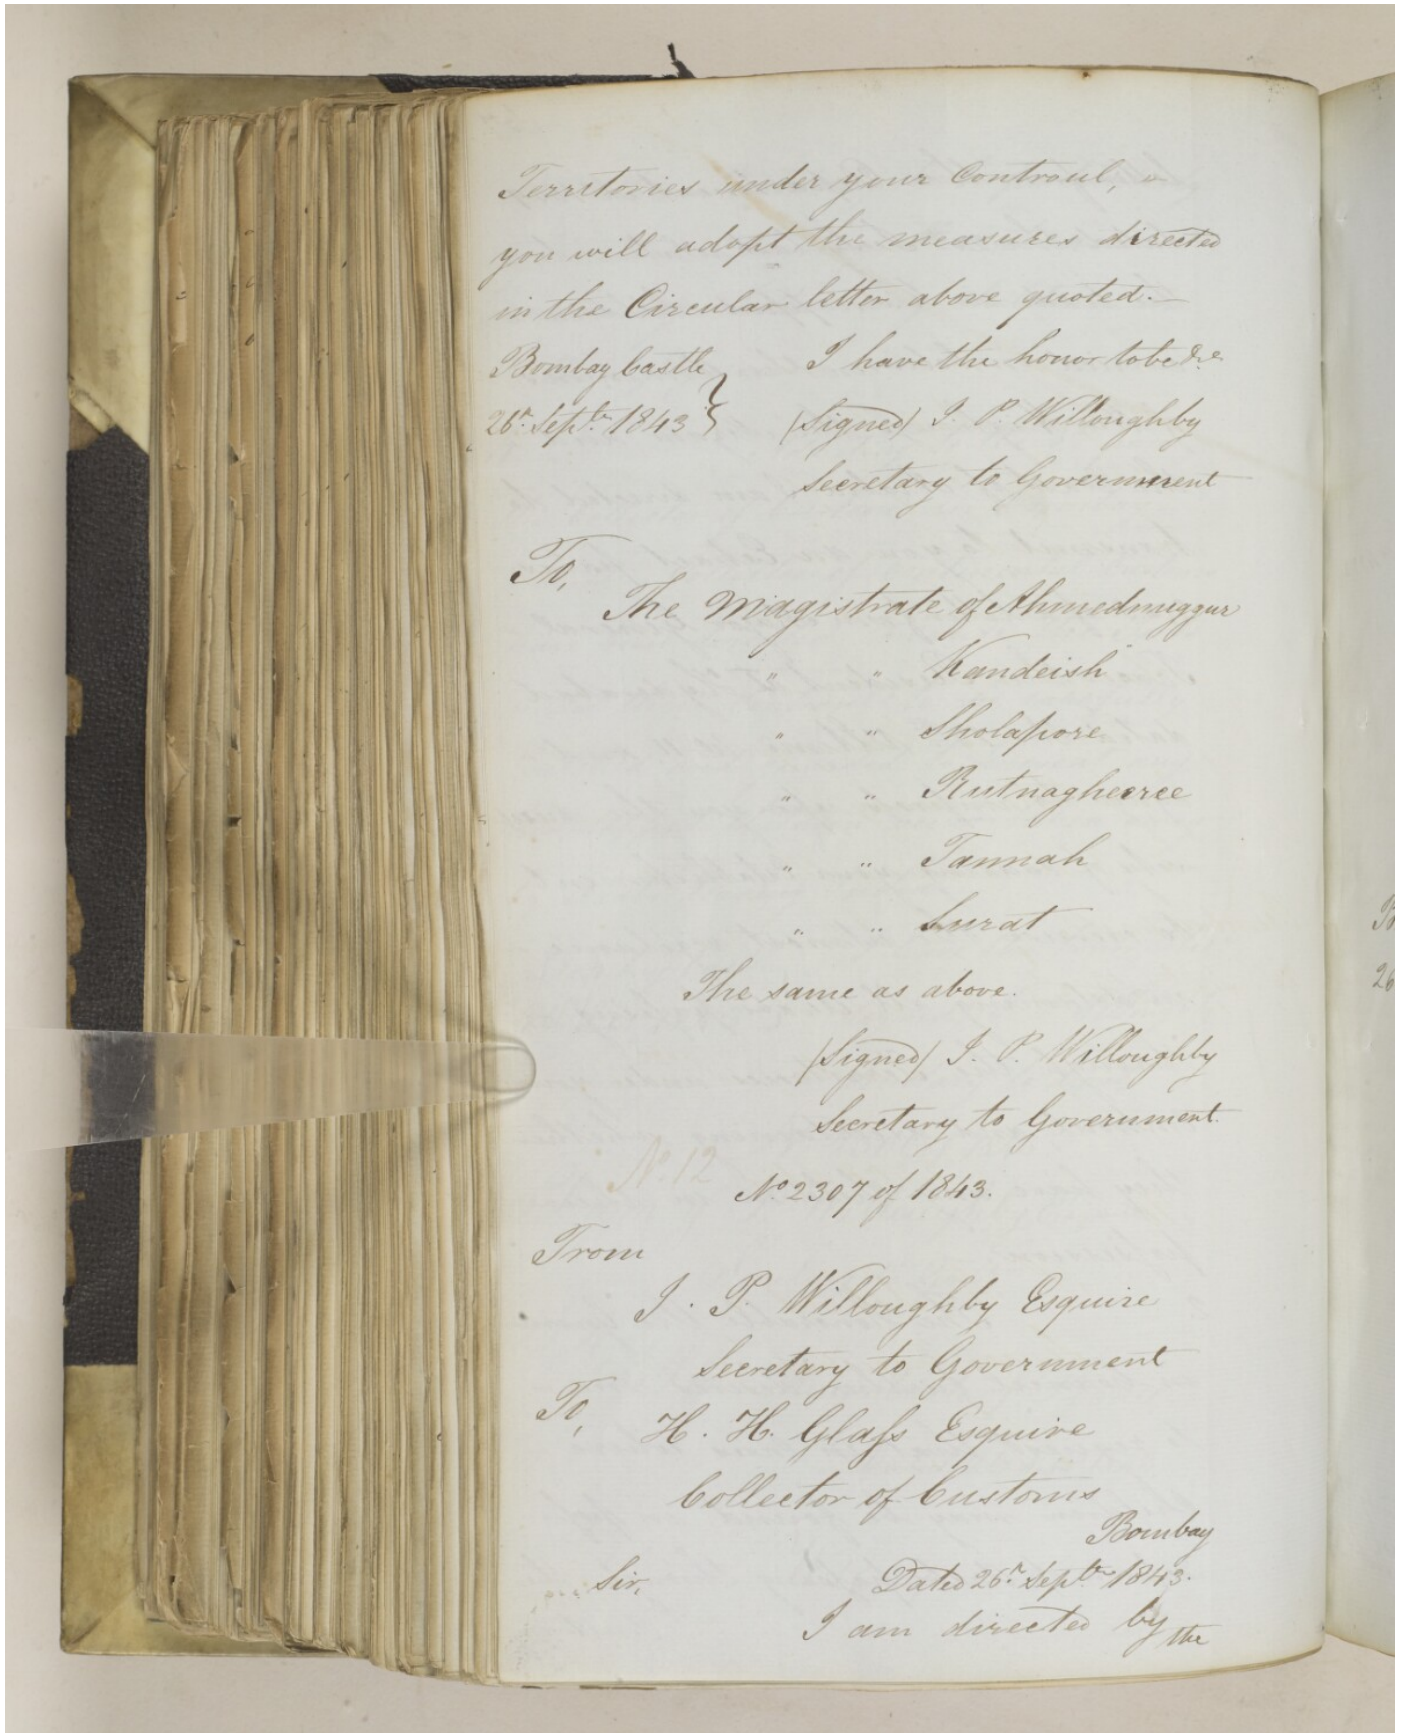 Territories under your Controul, &
you will adopt the measures directed
in the Circular letter above quoted.
Bombay Castle
26th Septbr 1843
I have the honor to be &c
(Signed) J. P. Willoughby
Secretary to Government
To,
The Magistrate of Ahmednuggur
" " Kandeish
" " Sholapore
" " Rutnagheree
" " Tannah
" " Surat
The same as above.
(Signed) J. P. Willoughby
Secretary to Government.
No. 12
No. 2307 of 1843.
From
J. P. Willoughby Esquire
Secretary to Government
To,
H. H. Glass Esquire
Collector of Customs
Bombay
Sir,
Dated 26th Septbr 1843.
I am directed by the